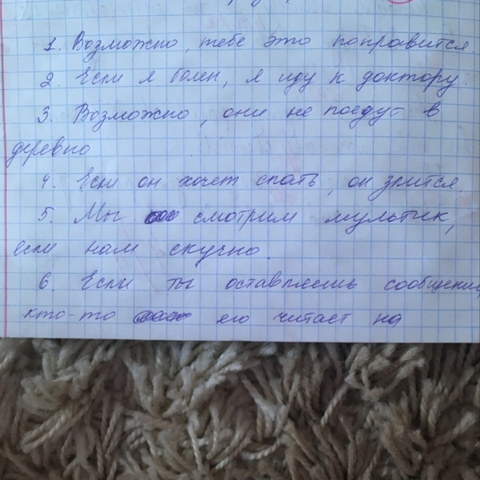 1. Возможно, тебе это понравится
2. Если я болен, я иду к доктору.
3. Возможно, они не поедут в
деревню
4. Если он хочет спать, он злится.
5. Мы смотрим мультик,
если нам скучно.
6. Если ты оставляешь сообщение,
кто-то его читает на